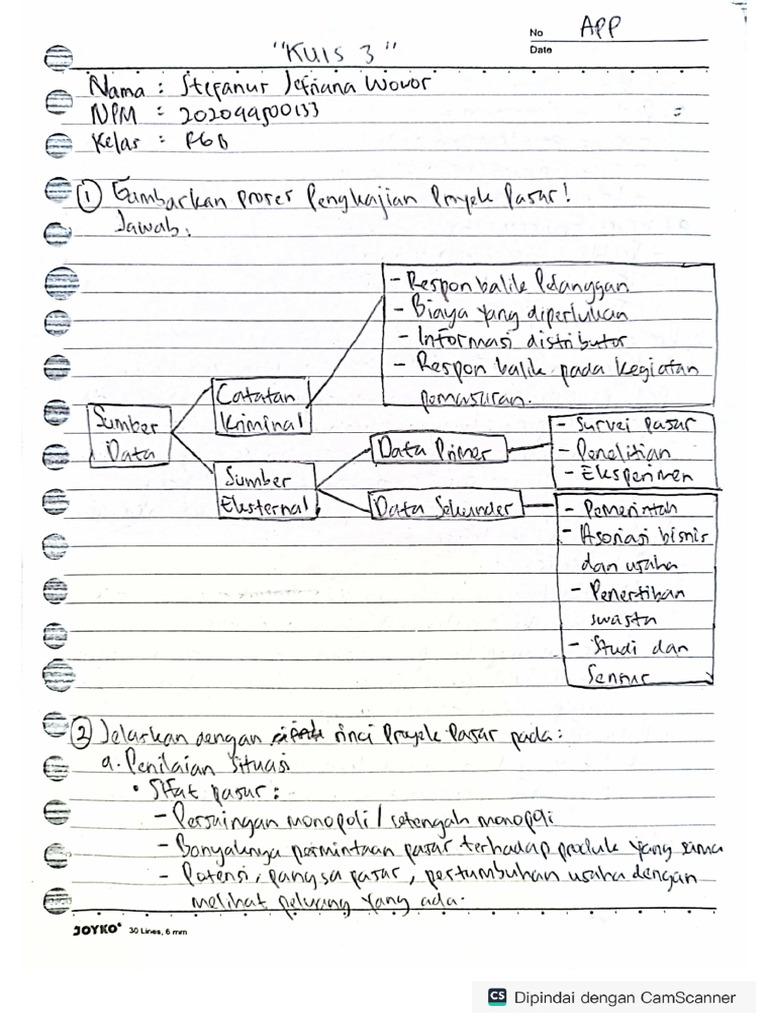 No APP
Date
"KUIS 3"
Nama : Stefanus Jefriana Wowor
NPM : 202044500133
Kelas : R6B
① Gambarkan proses Pengkajian Proyek Pasar!
Jawab :
- Respon balik Pelanggan
- Biaya yang diperlukan
- Informasi distributor
- Respon balik pada kegiatan
pemasaran.
Catatan
Kriminal
Sumber
Data
Sumber
Eksternal
Data Primer
- Survei pasar
- Penelitian
- Eksperimen
Data Sekunder
- Pemerintah
- Asosiasi bisnis
dan usaha
- Penertiban
swasta
- Studi dan
Sensus
② Jelaskan dengan rinci Proyek Pasar pada :
a. Penilaian Situasi
• Sifat pasar :
- Persaingan monopoli / setengah monopoli
- Banyaknya permintaan pasar terhadap produk yang sama
- Potensi, pangsa pasar, pertumbuhan usaha dengan
melihat peluang yang ada.
JOYKO® 30 Lines, 6 mm
CS Dipindai dengan CamScanner